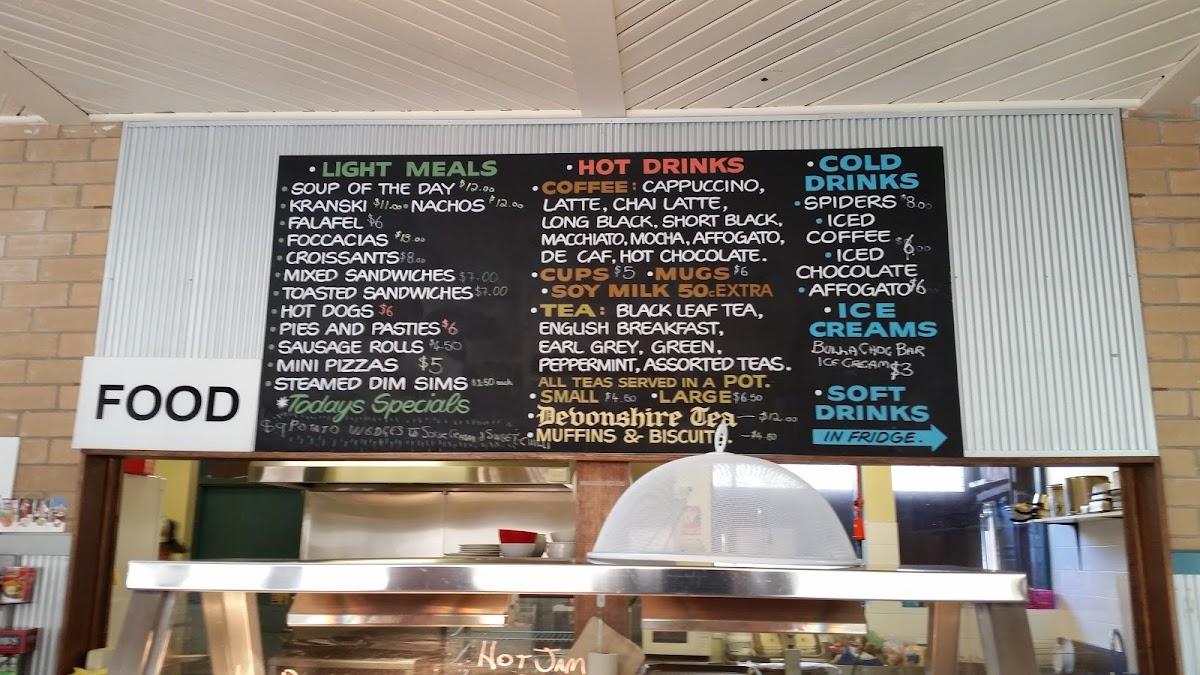 FOOD
• LIGHT MEALS
• SOUP OF THE DAY $12.00
• KRANSKI $11.00 • NACHOS $12.00
• FALAFEL $6
• FOCCACIAS
• CROISSANTS $8.00
• MIXED SANDWICHES $7.00
• TOASTED SANDWICHES $7.00
• HOT DOGS $6
• PIES AND PASTIES $6
• SAUSAGE ROLLS $4.50
• MINI PIZZAS $5
• STEAMED DIM SIMS $1.50 each
*Todays Specials
$9 POTATO WEDGES Sour Cream & Sweet
• HOT DRINKS
• COFFEE: CAPPUCCINO,
LATTE, CHAI LATTE,
LONG BLACK, SHORT BLACK,
MACCHIATO, MOCHA, AFFOGATO,
DE CAF, HOT CHOCOLATE.
• CUPS $5 • MUGS $6
• SOY MILK 50c EXTRA
• TEA: BLACK LEAF TEA,
ENGLISH BREAKFAST,
EARL GREY, GREEN,
PEPPERMINT, ASSORTED TEAS.
ALL TEAS SERVED IN A POT.
• SMALL $4.50 • LARGE $6.50
• Devonshire Tea — $12.00
• MUFFINS & BISCUITS. — $4.50
• COLD
DRINKS
• SPIDERS $8.00
• ICED
COFFEE $6.00
• ICED
CHOCOLATE
• AFFOGATO $6
• ICE
CREAMS
BULLA CHOC BAR
ICE CREAM $3
• SOFT
DRINKS
IN FRIDGE.
HOT JAM